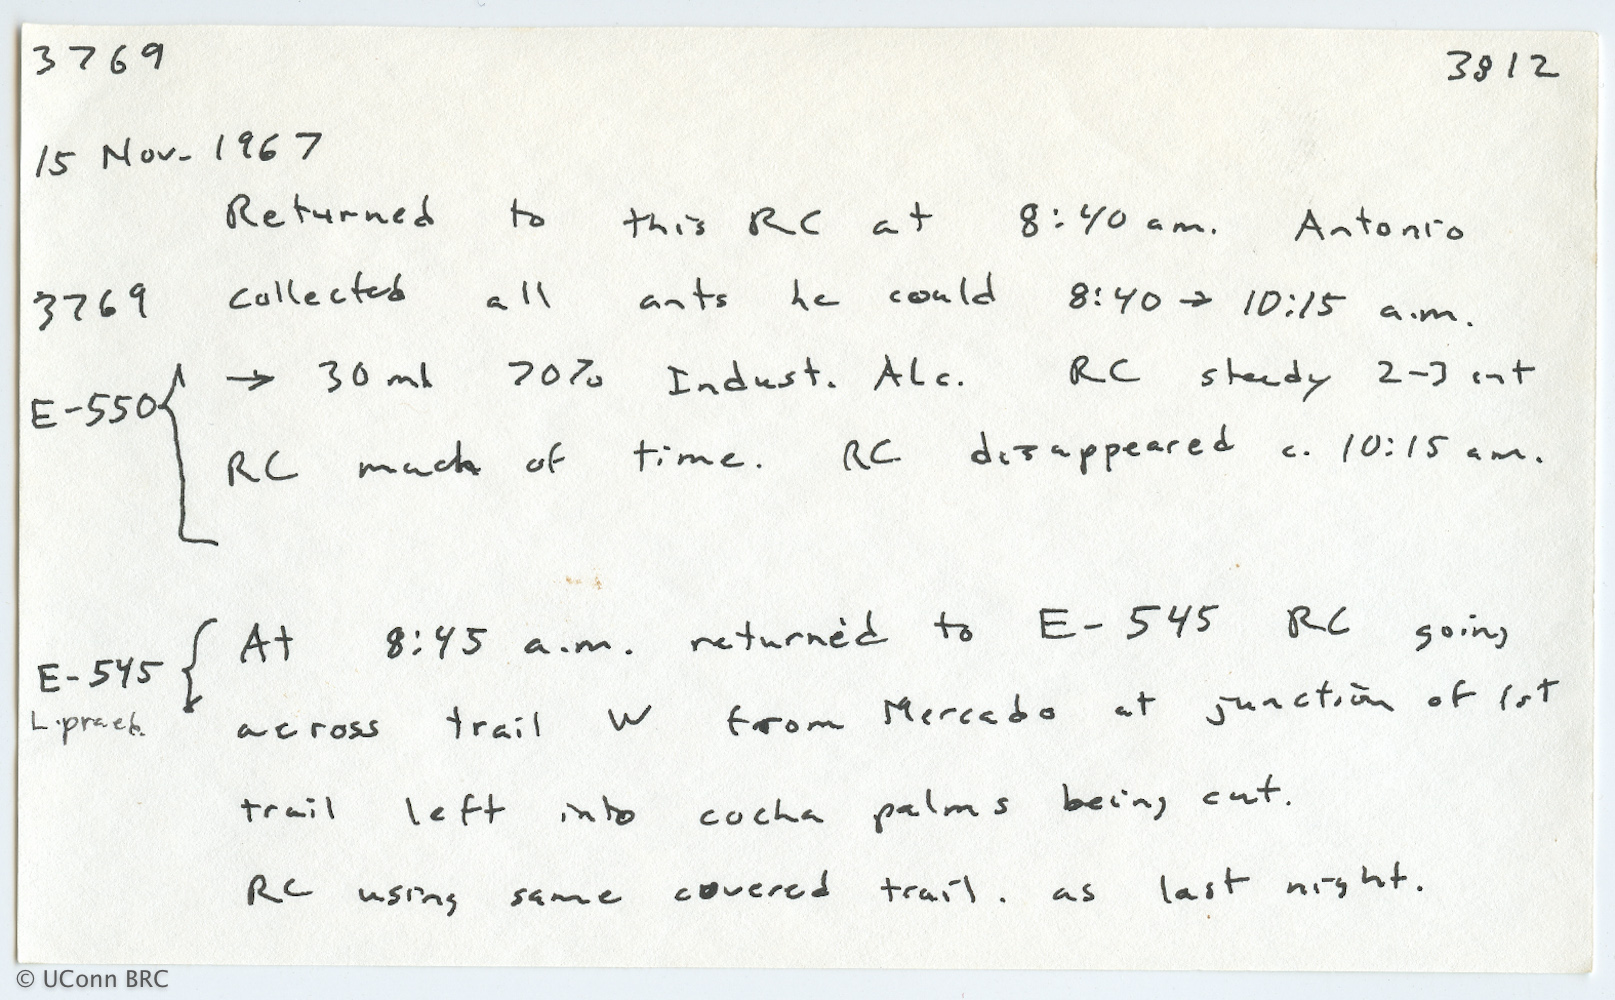 3769 3812
15 Nov. 1967
Returned to this RC at 8:40 am. Antonio
3769 collected all ants he could 8:40 → 10:15 a.m.
→ 30 ml 70% Indust. Alc. RC steady 2-3 ant
E-550
RC much of time. RC disappeared c. 10:15 am.
At 8:45 a.m. returned to E-545 RC going
E-545
L. praed. across trail W from Mercado at junction of 1st
trail left into cocha palms being cut.
RC using same covered trail. as last night.
© UConn BRC